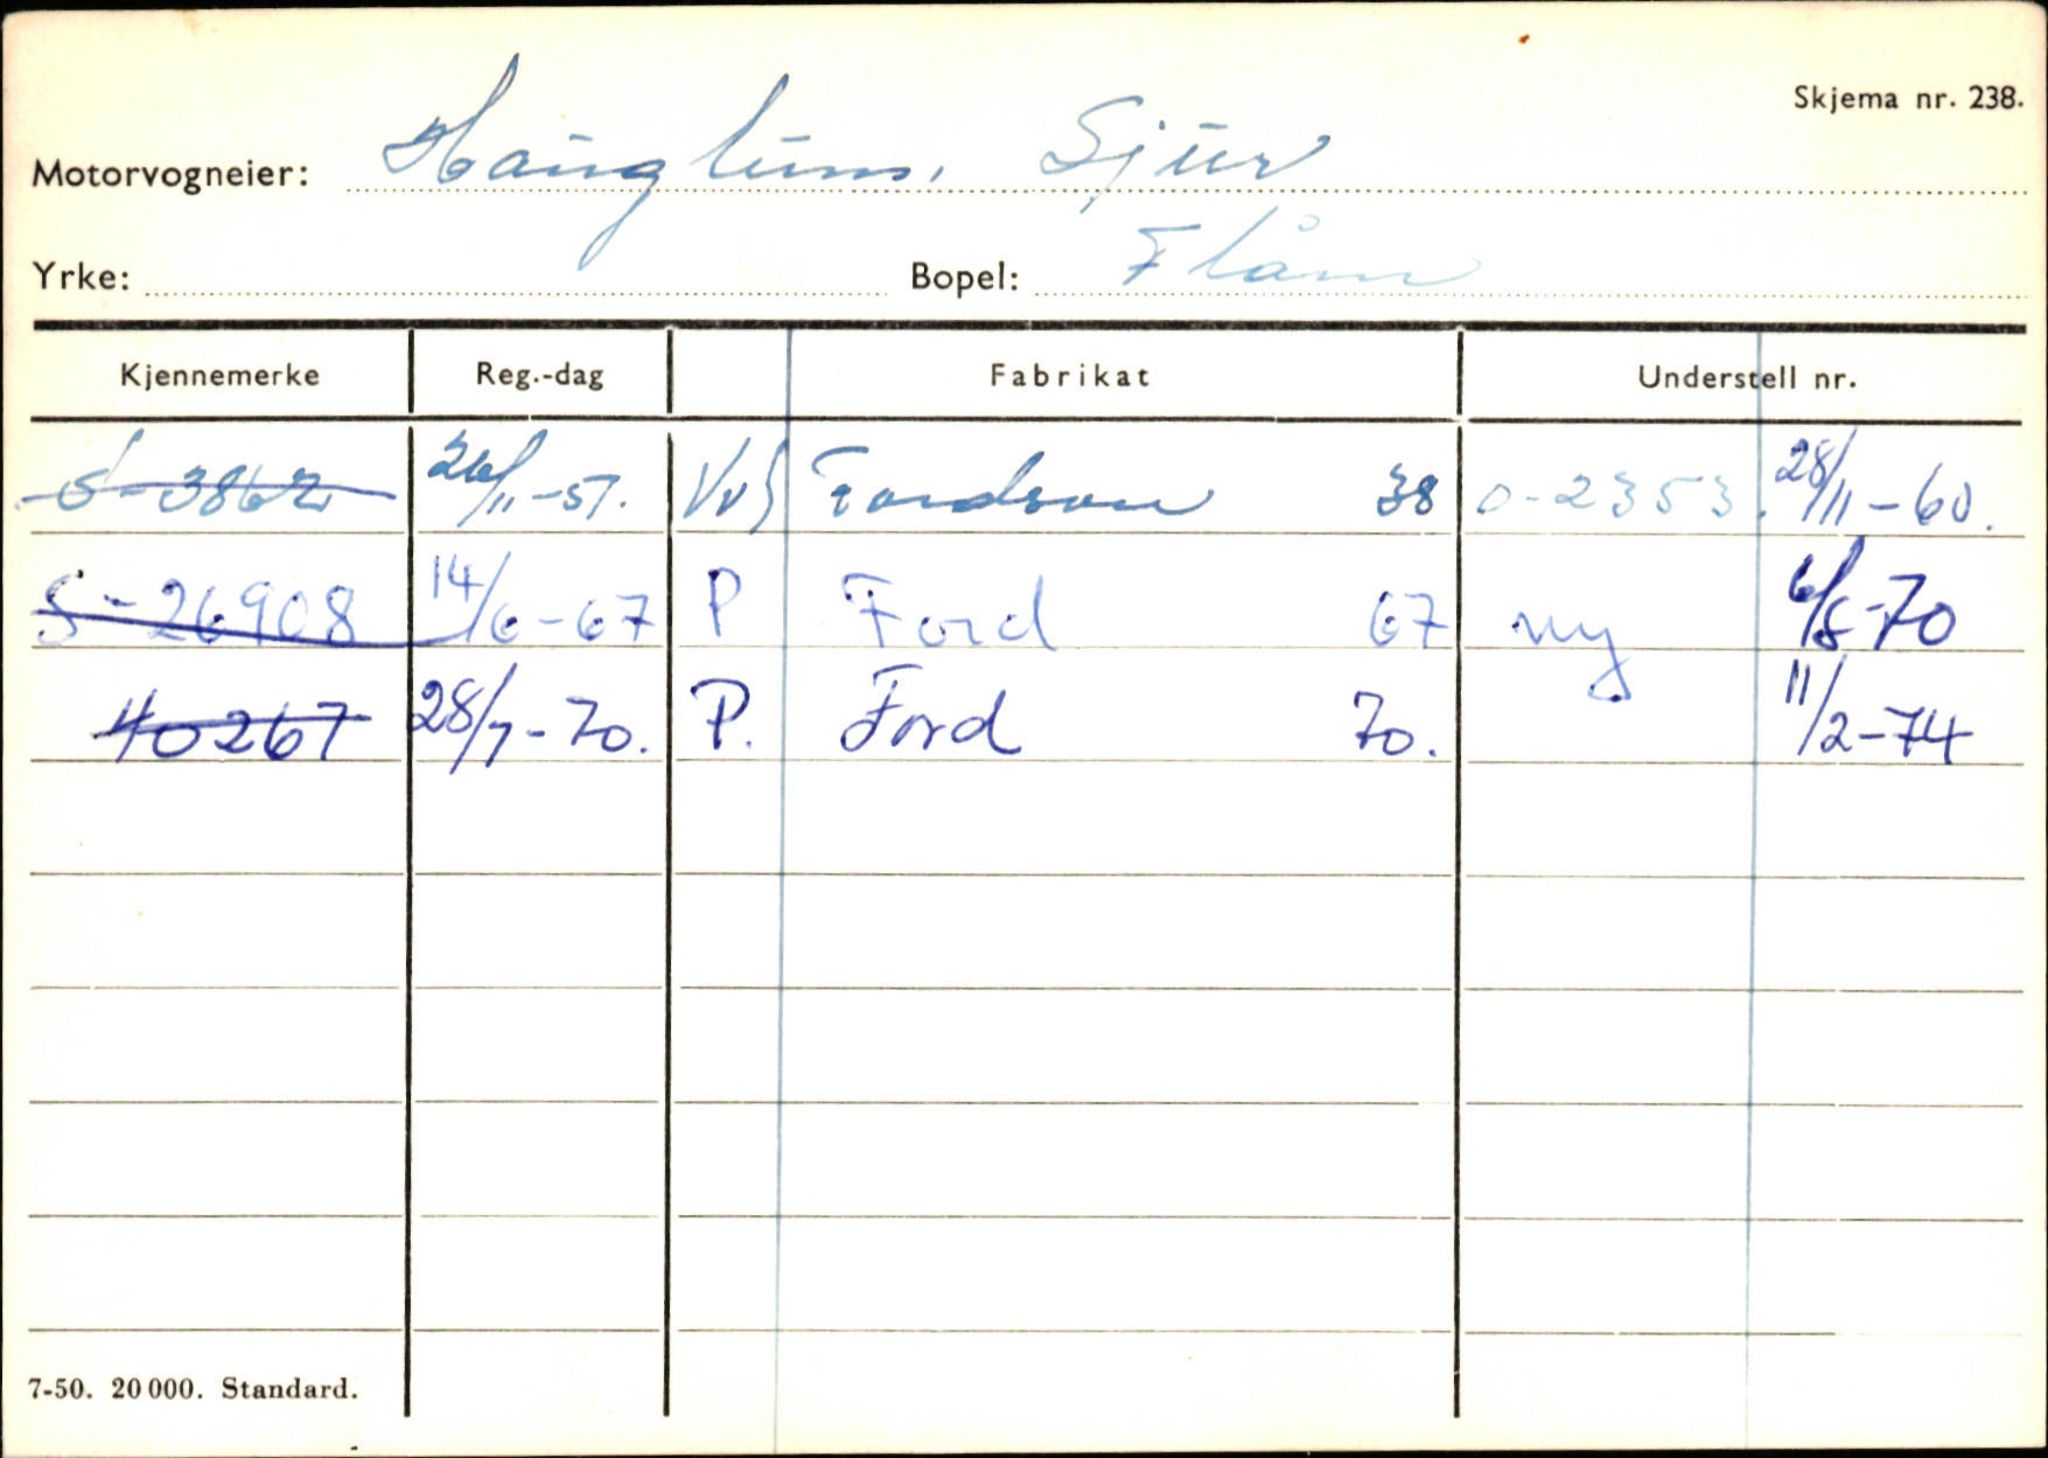 Skjema nr. 238.
Motorvogneier: Hauglum, Sjur
Yrke: Bopel: Flåm
Kjennemerke Reg.-dag Fabrikat Understell nr.
S-3862 26/11-57. VvS Fordson 38 0-2353. 28/11-60.
S-26908 14/6-67 P Ford 67 ny 6/5-70
40267 28/7-70. P. Ford 70. 11/2-74
7-50. 20 000. Standard.